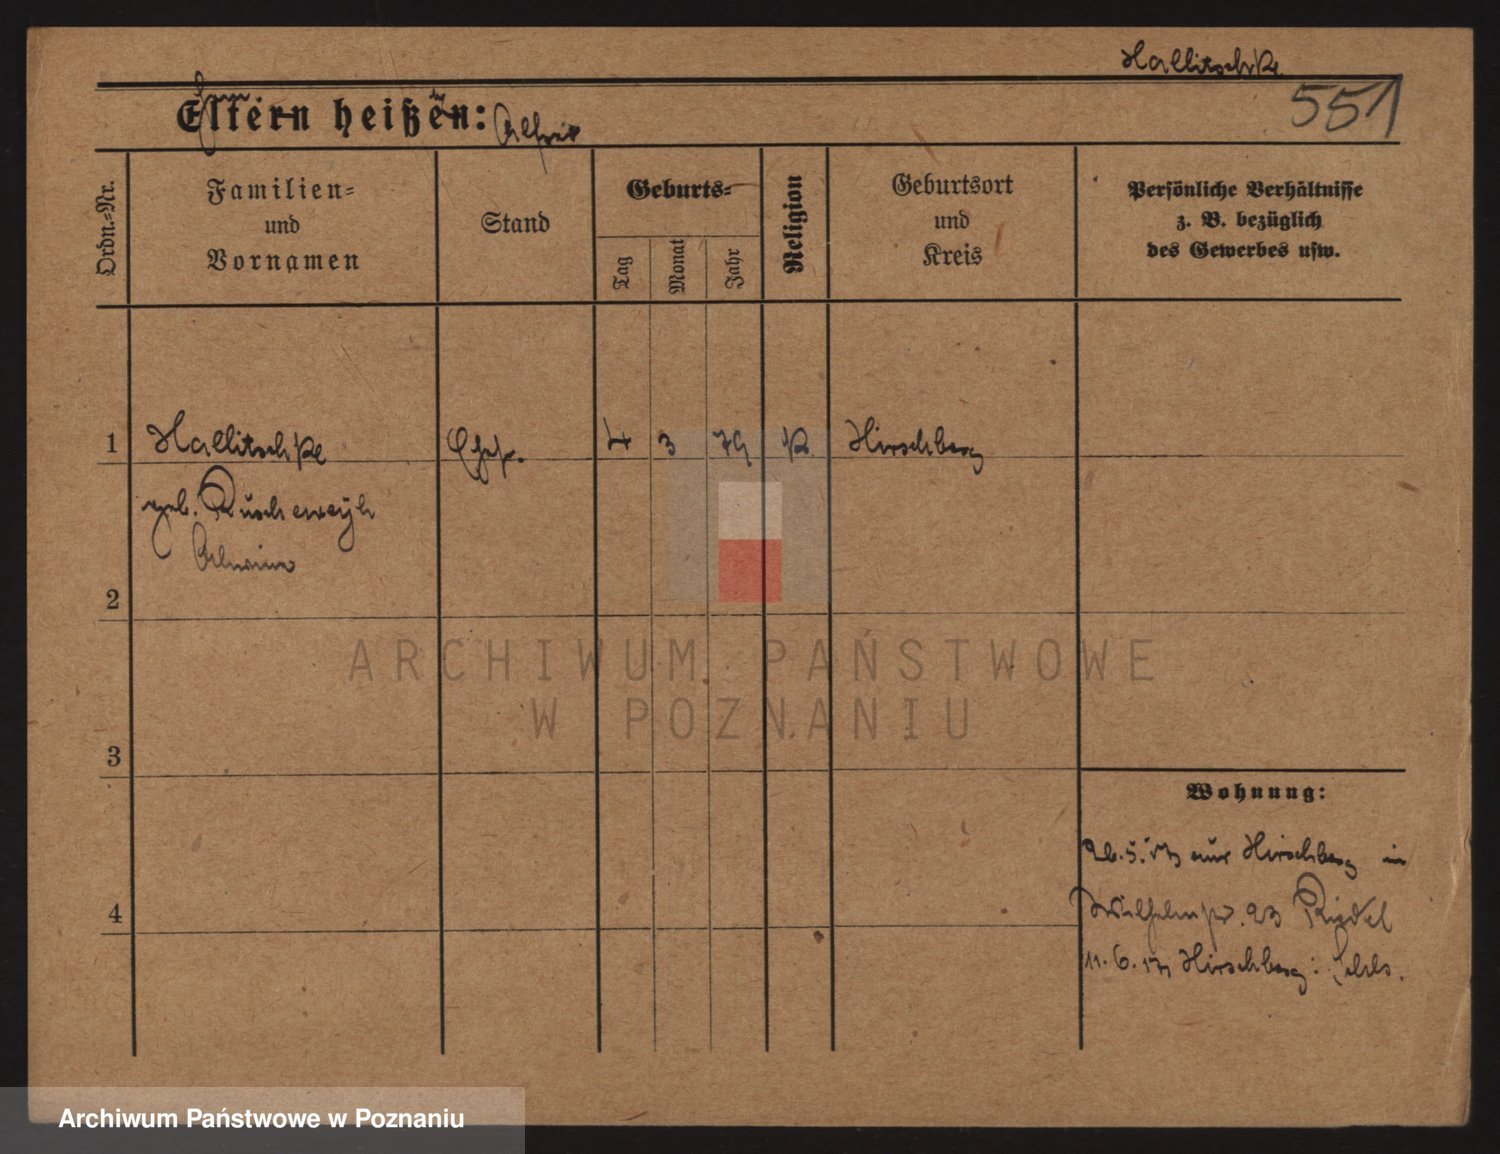 Hallitschke
551
Eltern heißen:
Ordn.-Nr.
Familien-
und
Vornamen
Stand
Geburts-
Tag
Monat
Jahr
Religion
Geburtsort
und
Kreis
Persönliche Verhältnisse
z. B. bezüglich
des Gewerbes usw.
1
Hallitschke
Ehfr.
4
3
79
K
Hirschberg
geb. Ruscheweyh
2
ARCHIWUM PAŃSTWOWE
W POZNANIU
3
Wohnung:
26.5.17 aus Hirschberg in
4
Wilhelmstr. 23 Riedel
11.6.17 Hirschberg: Schles.
Archiwum Państwowe w Poznaniu